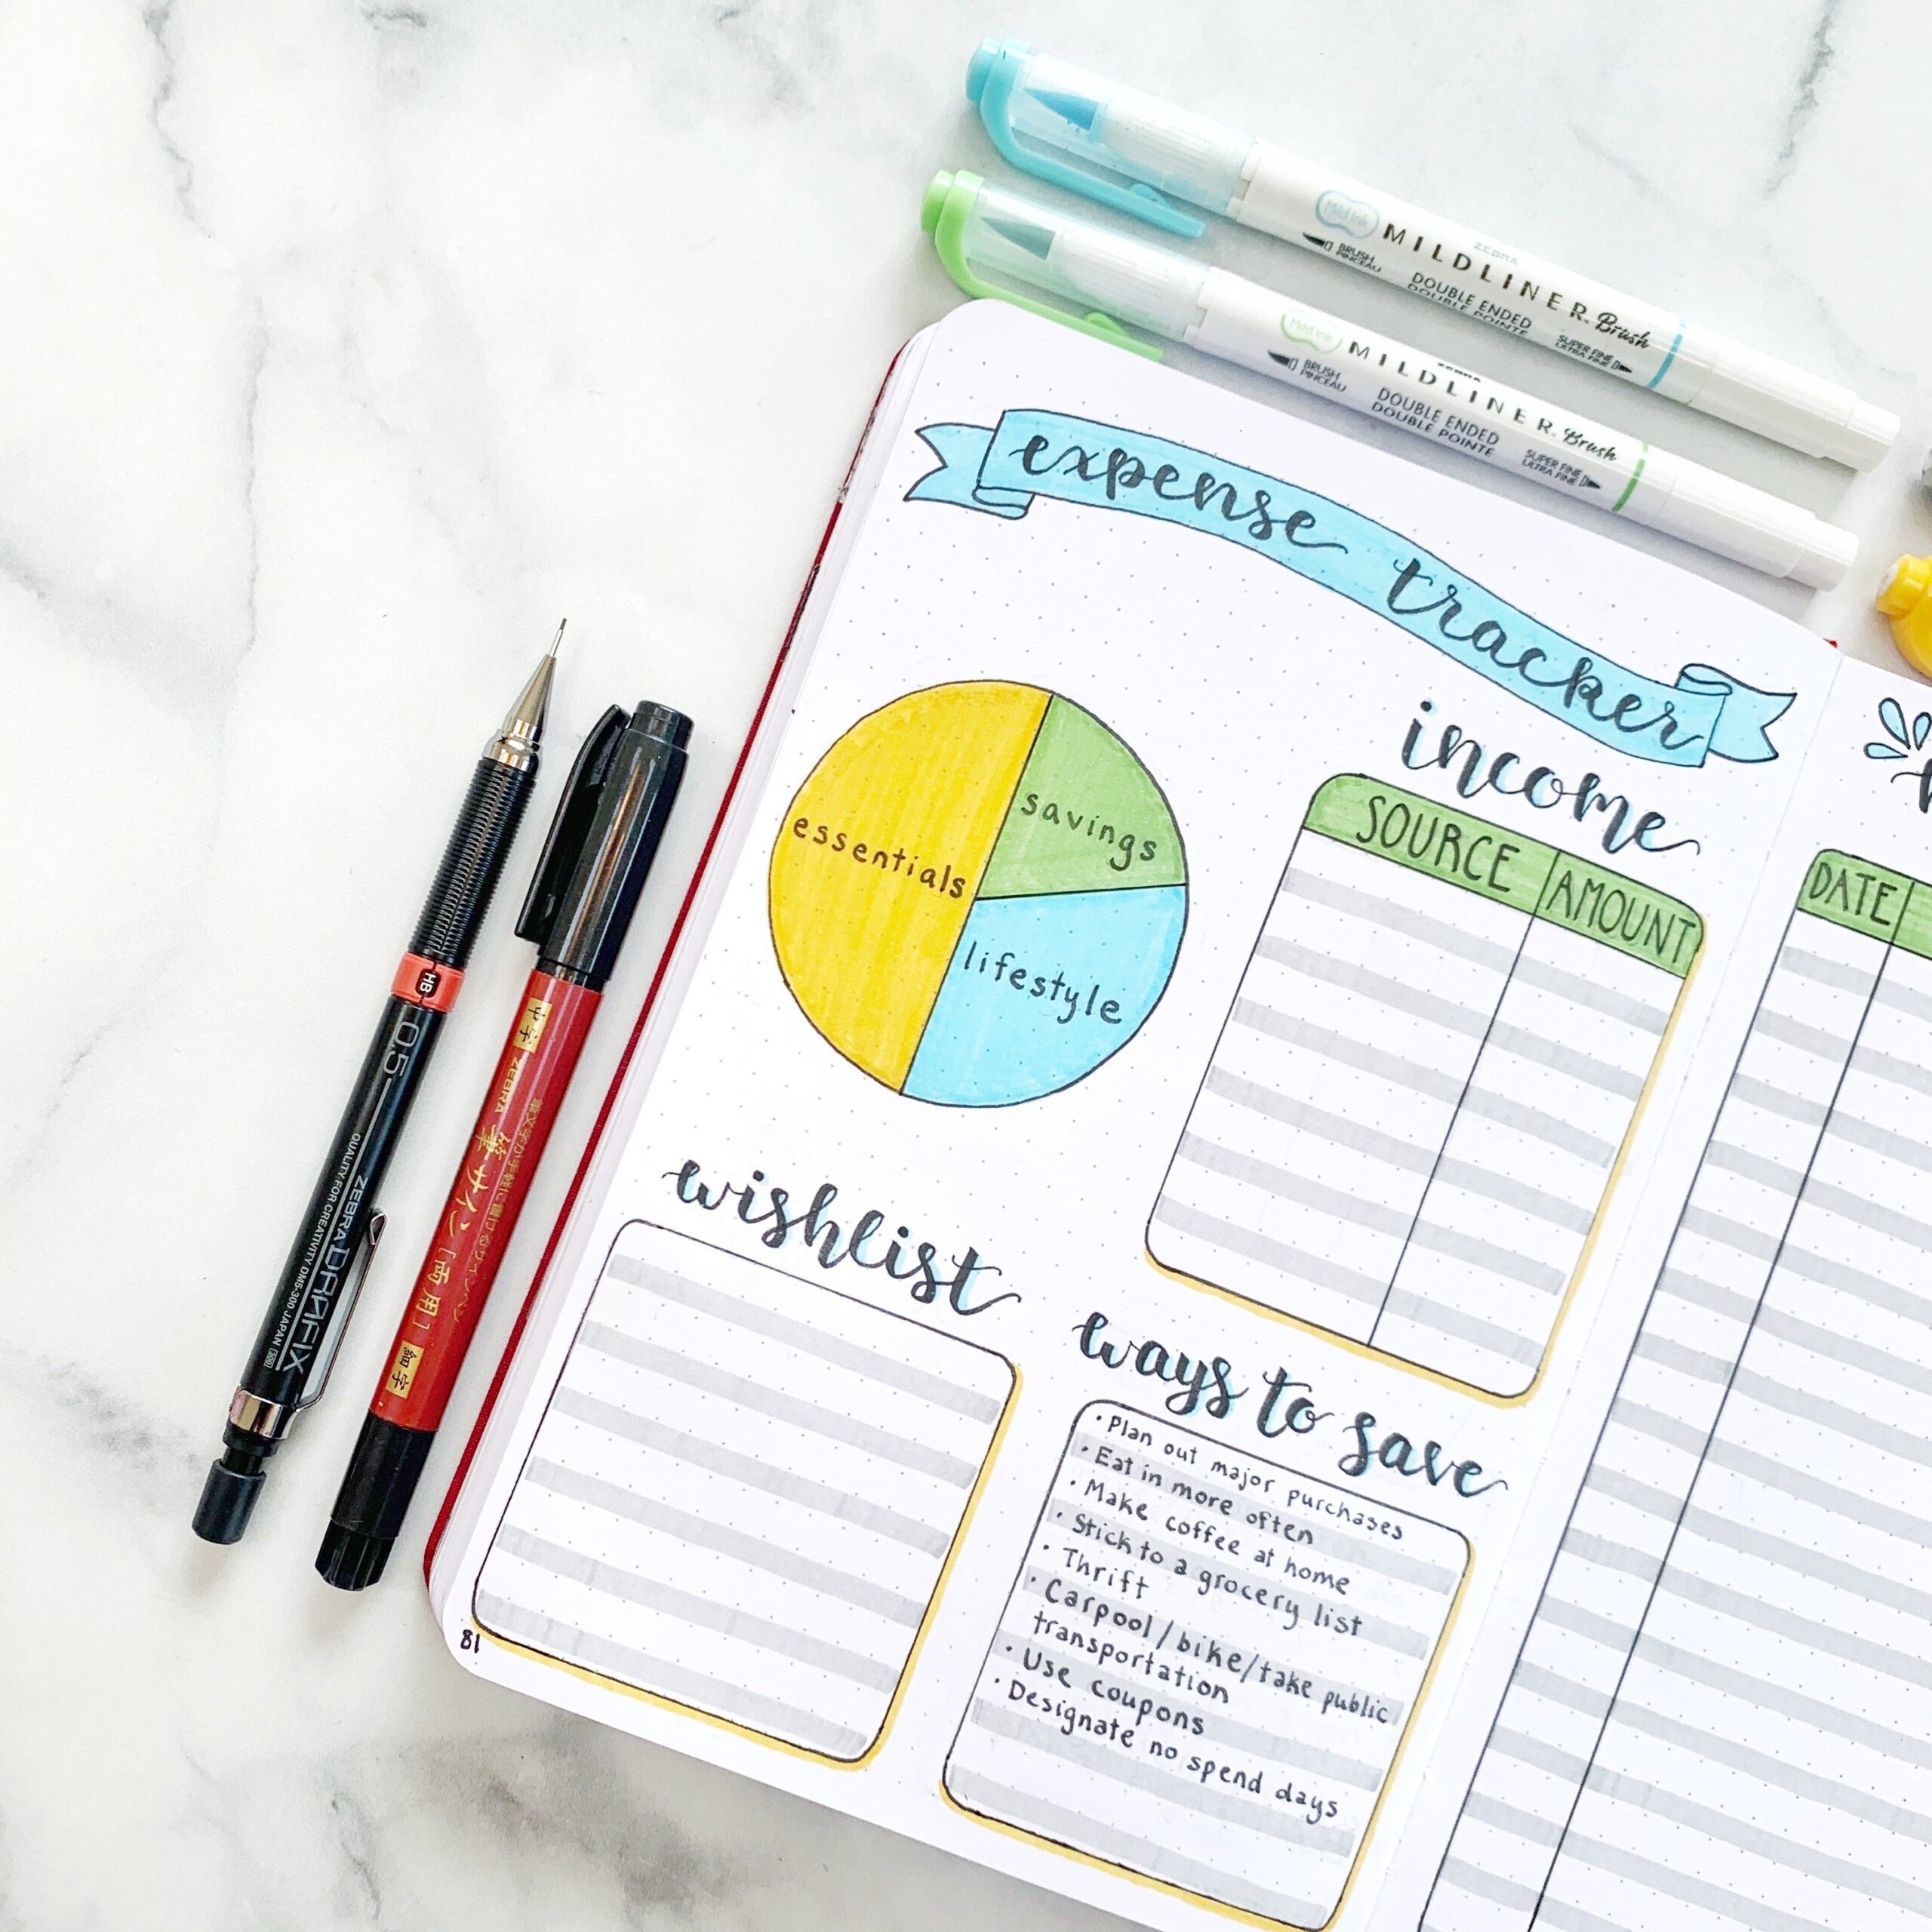 Mild Ink
ZEBRA
MILDLINER. Brush
BRUSH
PINCEAU
DOUBLE ENDED
DOUBLE POINTE
SUPER FINE
ULTRA FINE
Mild Ink
ZEBRA
MILDLINER. Brush
BRUSH
PINCEAU
DOUBLE ENDED
DOUBLE POINTE
SUPER FINE
ULTRA FINE
expense tracker
essentials
savings
lifestyle
income
SOURCE AMOUNT
DATE
wishlist
ways to save
· Plan out major purchases
· Eat in more often
· Make coffee at home
· Stick to a grocery list
· Thrift
· Carpool/bike/take public
transportation
· Use coupons
· Designate no spend days
81
HB
0.5
ZEBRA DRAFIX
QUALITY FOR CREATIVITY DM5-300 JAPAN
中字
ZEBRA 筆サイン [両用]
細字